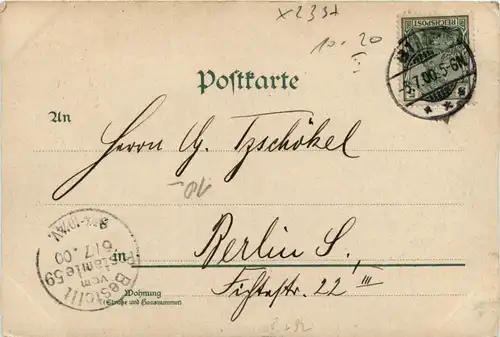 x23st
10.20
I
REICHSPOST
.7.00.5-6N.
Postkarte
An
Herrn G. Tzschökel
-10.
Bestellt
vom
Postamte 59
6/7.00
in Berlin S.,
Wohnung
(Straße und Hausnummer)
Fichtestr. 22 III